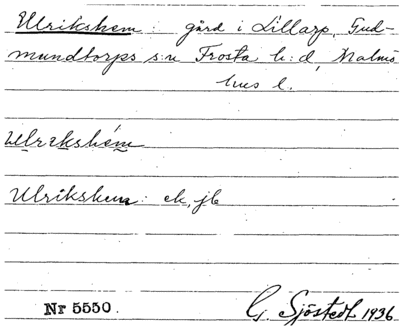 Ulrikshem: gård i Lillarp, Gud-
mundtorps s:n Frosta h:d, Malmö
hus l.
Ulrikshém
Ulrikshem: ek, jb
Nr 5550.
G. Sjöstedt 1936